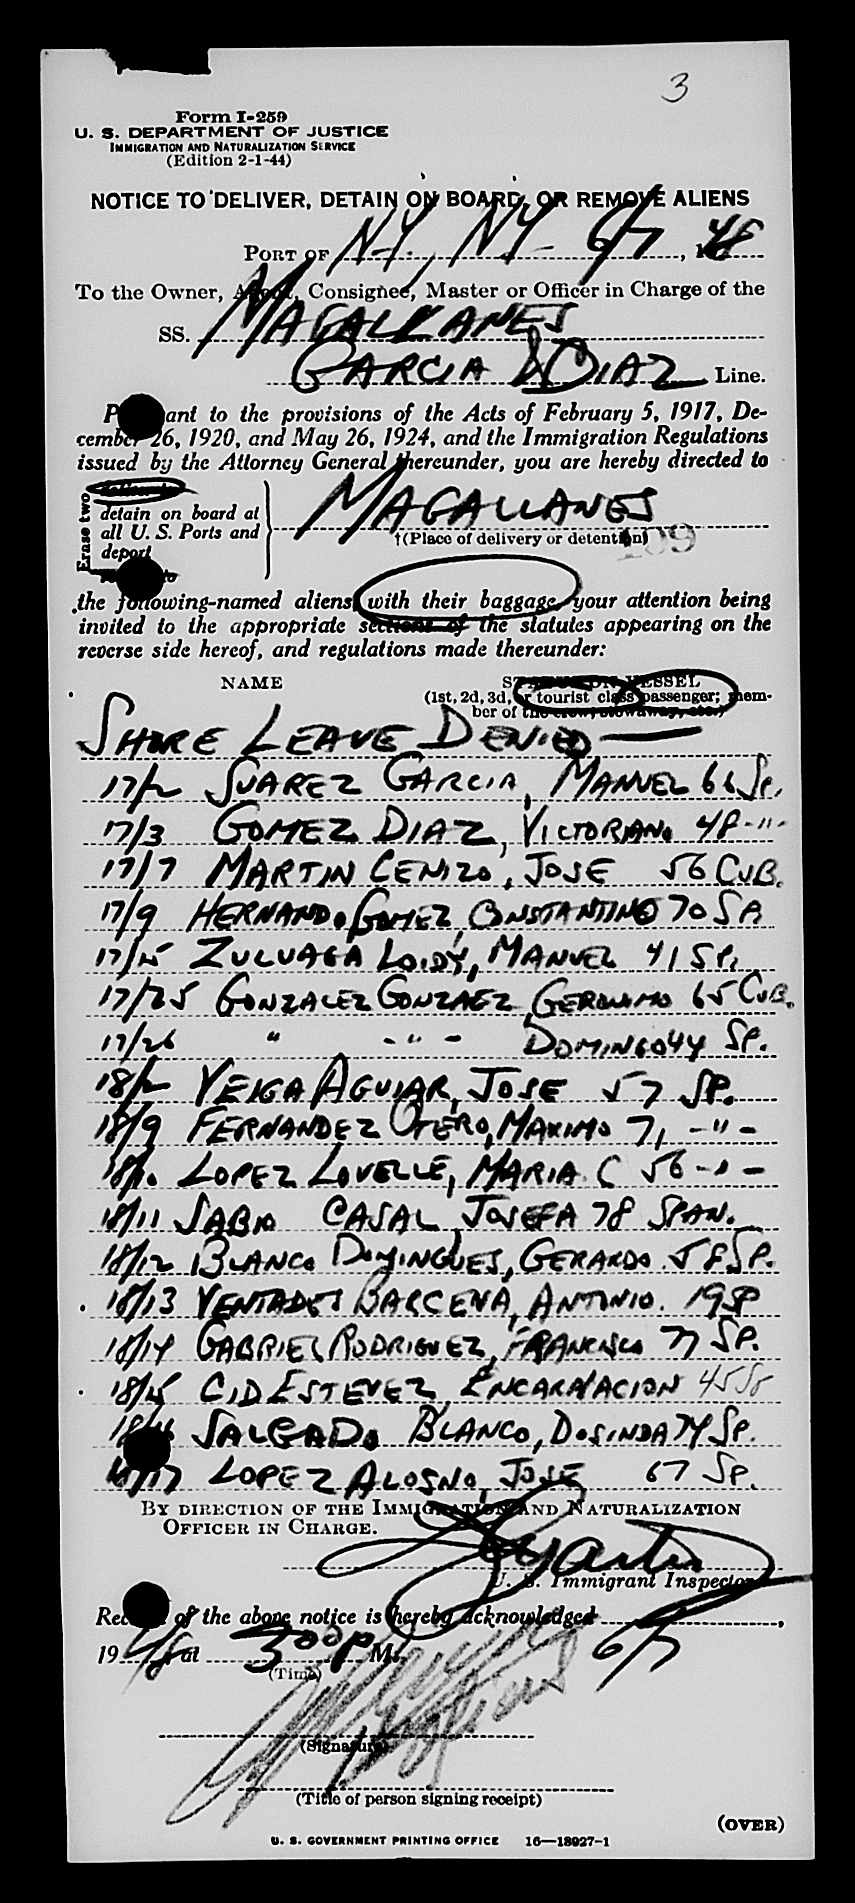 3
Form I-259
U. S. DEPARTMENT OF JUSTICE
IMMIGRATION AND NATURALIZATION SERVICE
(Edition 2-1-44)
NOTICE TO DELIVER, DETAIN ON BOARD, OR REMOVE ALIENS
PORT OF N.Y., N.Y. 6/7, 1948
To the Owner, Agent, Consignee, Master or Officer in Charge of the
SS. MAGALLANES
GARCIA & DIAZ Line.
Pursuant to the provisions of the Acts of February 5, 1917, De-
cember 26, 1920, and May 26, 1924, and the Immigration Regulations
issued by the Attorney General thereunder, you are hereby directed to
Erase two
detain on board at
all U. S. Ports and
deport
MAGALLANES
†(Place of delivery or detention)
109
the following-named aliens, with their baggage, your attention being
invited to the appropriate sections of the statutes appearing on the
reverse side hereof, and regulations made thereunder:
NAME STATUS ON VESSEL
(1st, 2d, 3d, or tourist class passenger; mem-
ber of the crew, stowaway, etc.)
SHORE LEAVE DENIED —
17/2 SUAREZ GARCIA, MANUEL 66 SP.
17/3 GOMEZ DIAZ, VICTORIANO 48 -"-
17/7 MARTIN CENIZO, JOSE 56 CUB.
17/9 HERNANDO GOMEZ, CONSTANTINO 70 SP
17/15 ZULUAGA LOIDY, MANUEL 41 SP.
17/25 GONZALEZ GONZAEZ, GERONIMO 65 CUB.
17/26 " -"- DOMINGO 44 SP.
18/2 VEIGA AGUIAR, JOSE 57 SP.
18/9 FERNANDEZ OTERO, MAXIMO 71 -"-
18/10 LOPEZ LOVELLE, MARIA C 56 -"-
18/11 SABIO CASAL, JOSEFA 78 SPAN.
18/12 BLANCO DOMINGUES, GERARDO 58 SP.
18/13 VENTADES BARCENA, ANTONIO. 19 SP
18/14 GABRIEL RODRIGUEZ, FRANCISCO 77 SP.
18/15 CID ESTEVEZ, ENCARNACION 45 SP
18/16 SALGADO BLANCO, DOSINDA 74 SP.
18/17 LOPEZ ALOSNO, JOSE 67 SP.
BY DIRECTION OF THE IMMIGRATION AND NATURALIZATION
OFFICER IN CHARGE.
U. S. Immigrant Inspector
Receipt of the above notice is hereby acknowledged 6/7,
1948 at 3 00 P M.
(Time)
(Signature)
(Title of person signing receipt)
(OVER)
U. S. GOVERNMENT PRINTING OFFICE 16—18927-1